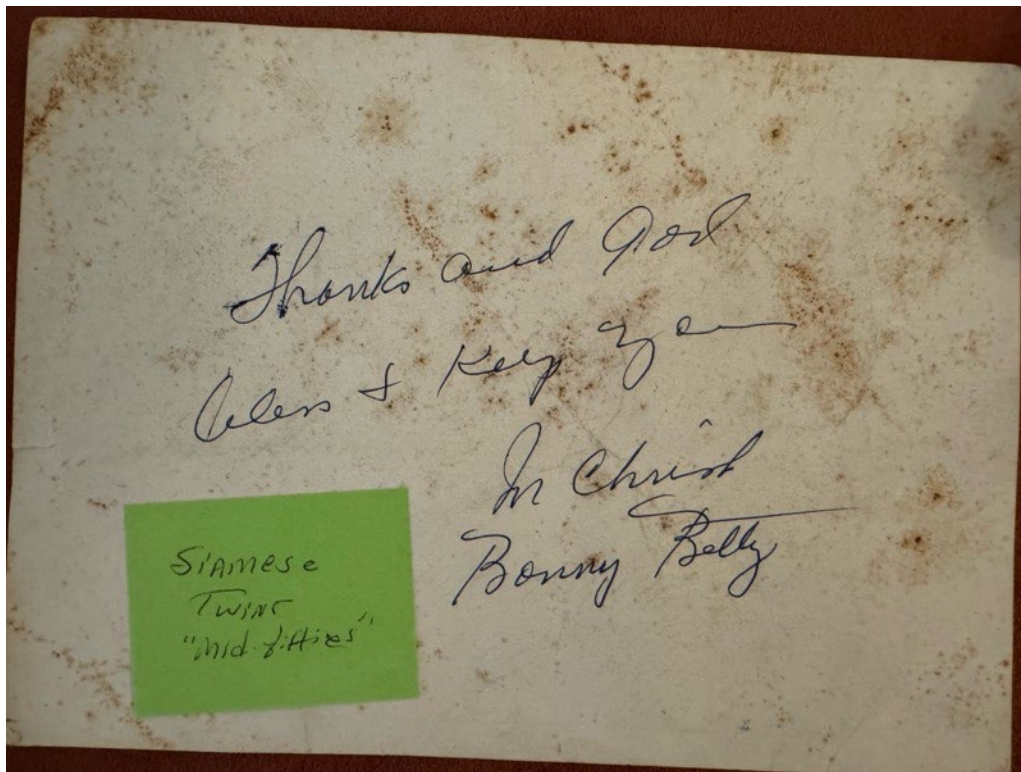 Thanks and God
bless & Keep you
In Christ
Bonny Betty
Siamese
Twins
"Mid-fifties"